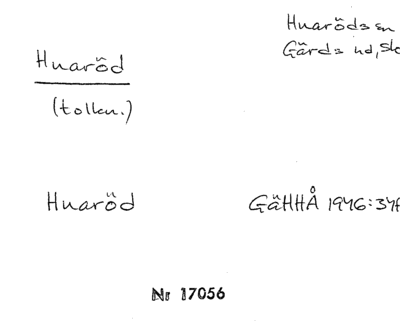 Huaröds sn
Gärds hd,
Huaröd
(tolkn.)
Huaröd GäHHÅ 1946:
Nr 17056